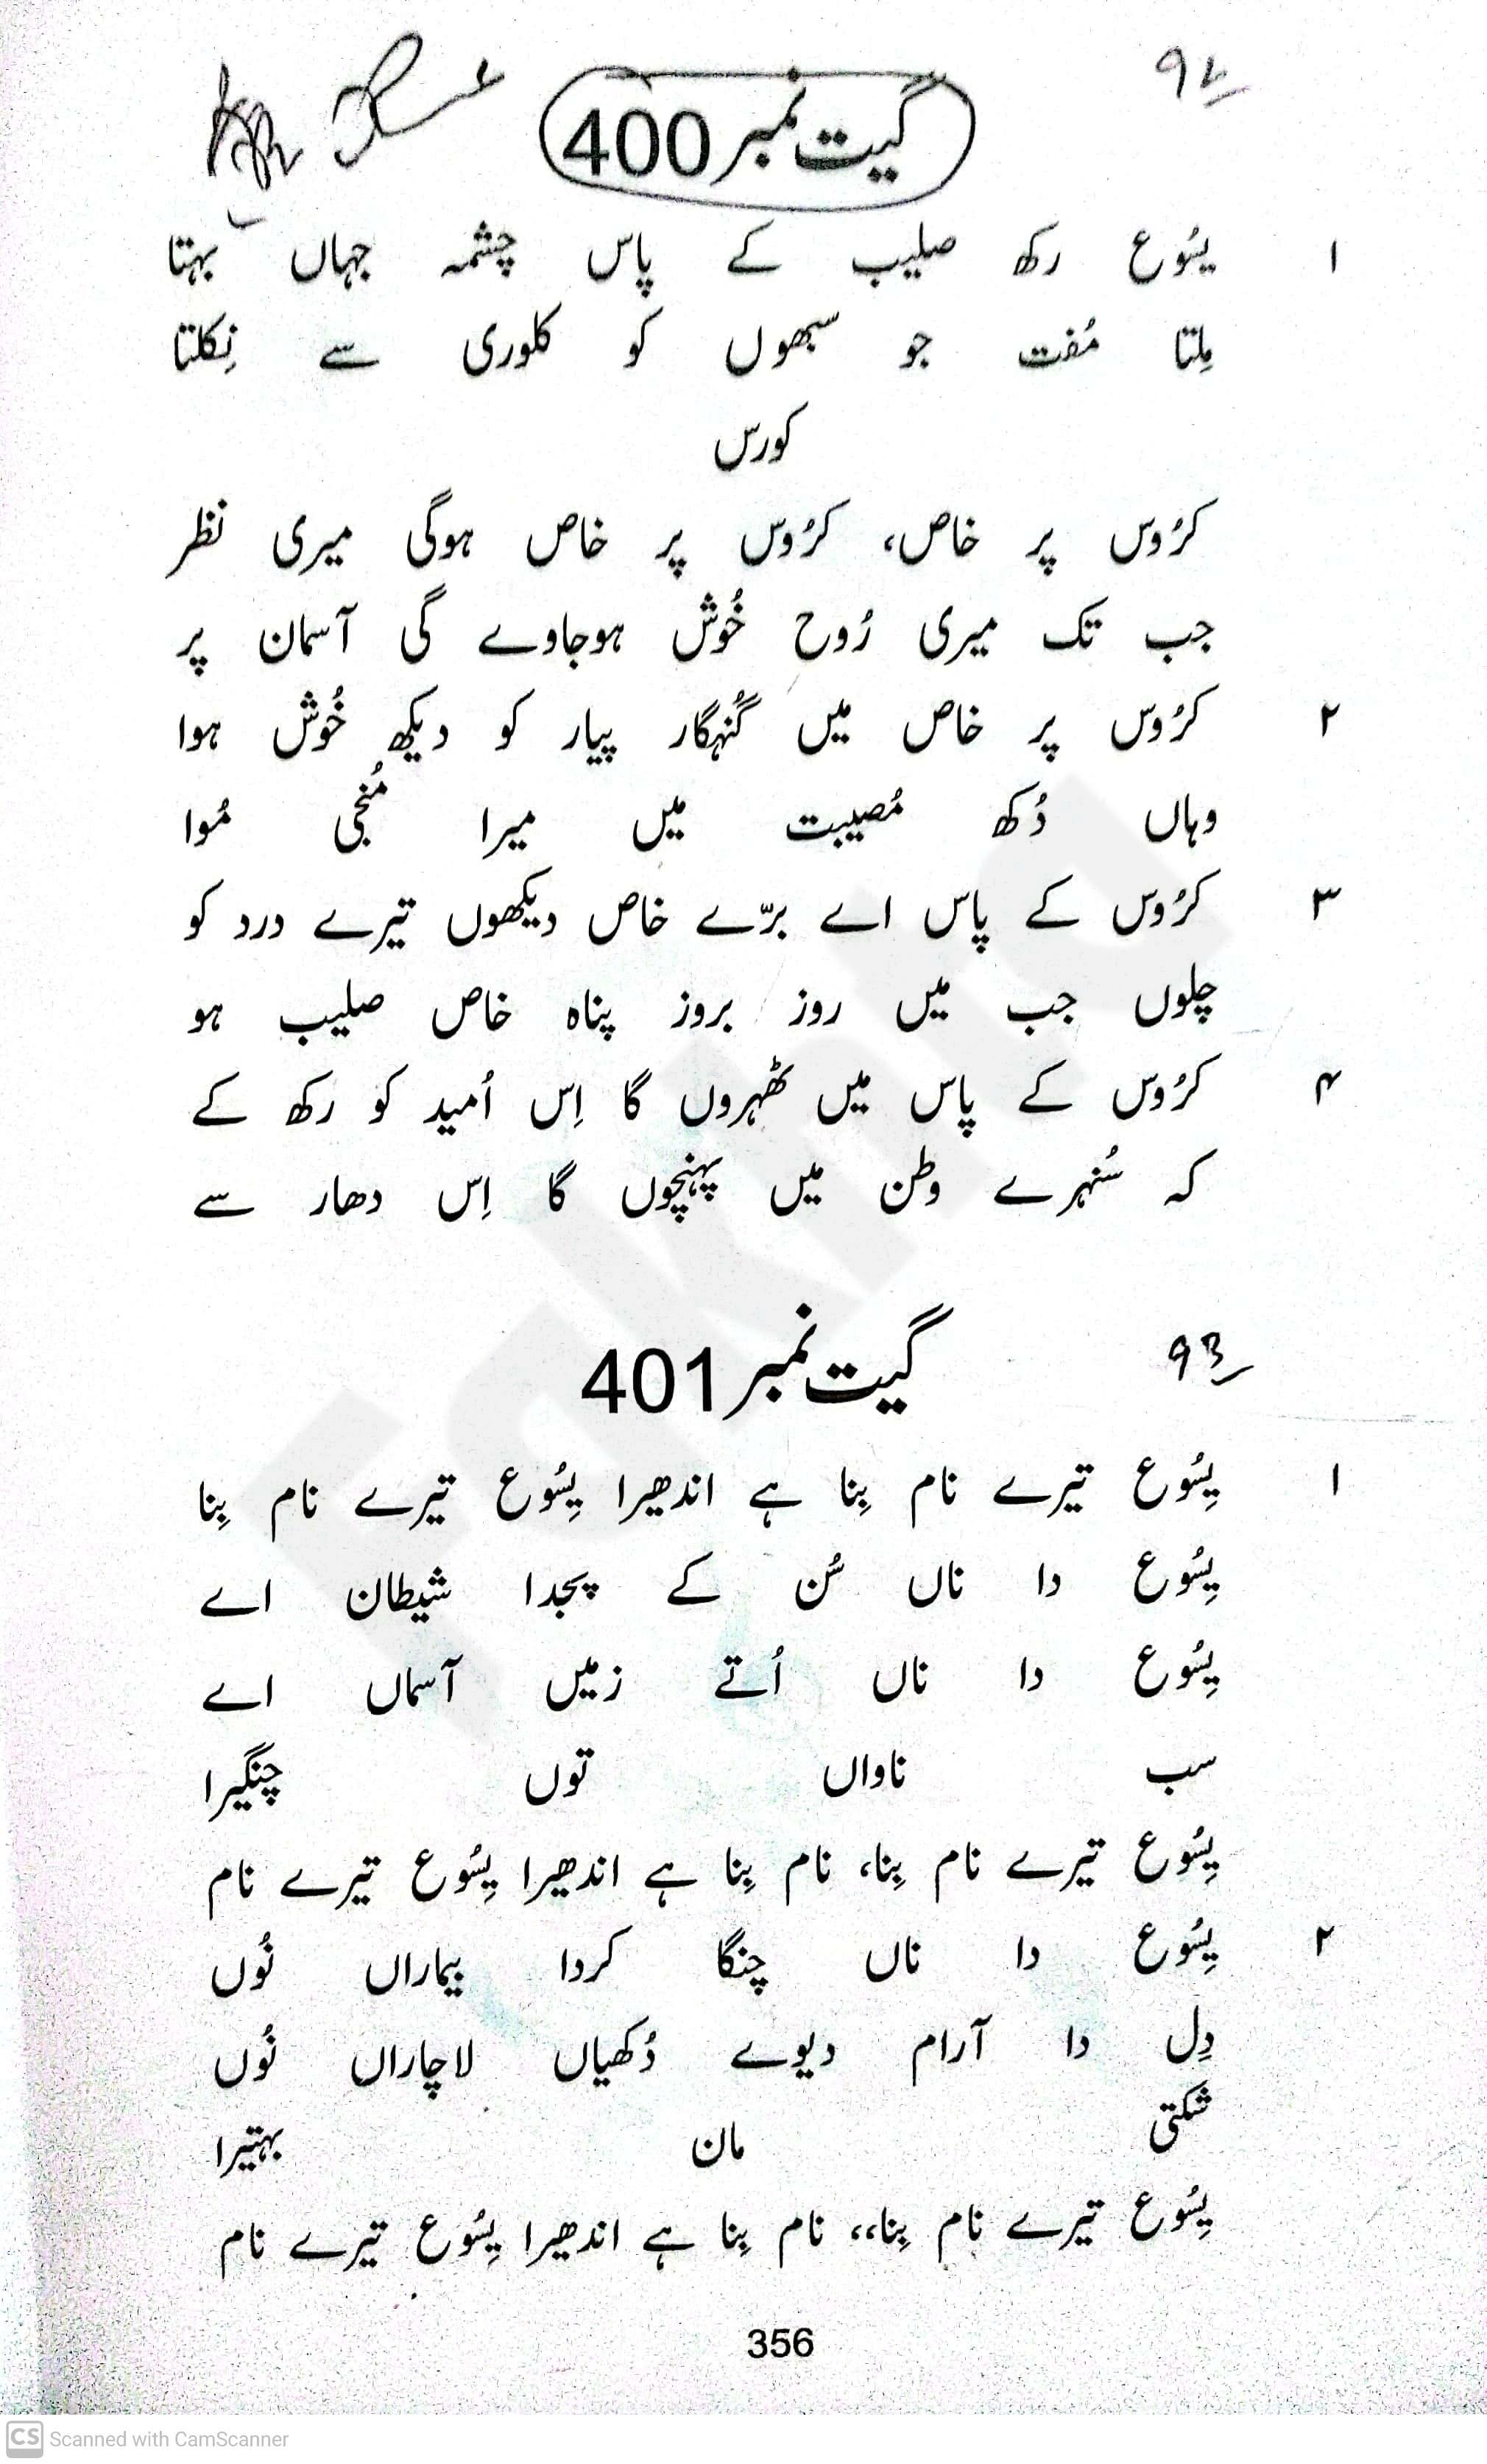 ۹۲
گیت نمبر 400
۱ یسُوع رکھ صلیب کے پاس چشمہ جہاں بہتا
مِلتا مُفت جو سبھوں کو کلوری سے نِکلتا
کورس
کرُوس پر خاص، کرُوس پر خاص ہوگی میری نظر
جب تک میری رُوح خُوش ہوجاوے گی آسمان پر
۲ کرُوس پر خاص میں گنُہگار پیار کو دیکھ خُوش ہوا
وہاں دُکھ مُصیبت میں میرا مُنجی مُوا
۳ کرُوس کے پاس اے برّے خاص دیکھوں تیرے درد کو
چلوں جب میں روز بروز پناہ خاص صلیب ہو
۴ کرُوس کے پاس میں ٹھہروں گا اِس اُمید کو رکھ کے
کہ سُنہرے وطن میں پہنچوں گا اِس دھار سے
گیت نمبر 401
93
۱ یِسُوع تیرے نام بِنا ہے اندھیرا یِسُوع تیرے نام بِنا
یِسُوع دا ناں سُن کے پجدا شیطان اے
یِسُوع دا ناں اُتے زمیں آسماں اے
سب ناواں توں چنگیرا
یِسُوع تیرے نام بِنا، نام بِنا ہے اندھیرا یِسُوع تیرے نام
۲ یِسُوع دا ناں چنگا کردا بیماراں نُوں
دِل دا آرام دیوے دُکھیاں لاچاراں نُوں
شکتی مان بہتیرا
یِسُوع تیرے نام بِنا،، نام بِنا ہے اندھیرا یِسُوع تیرے نام
356
CS Scanned with CamScanner